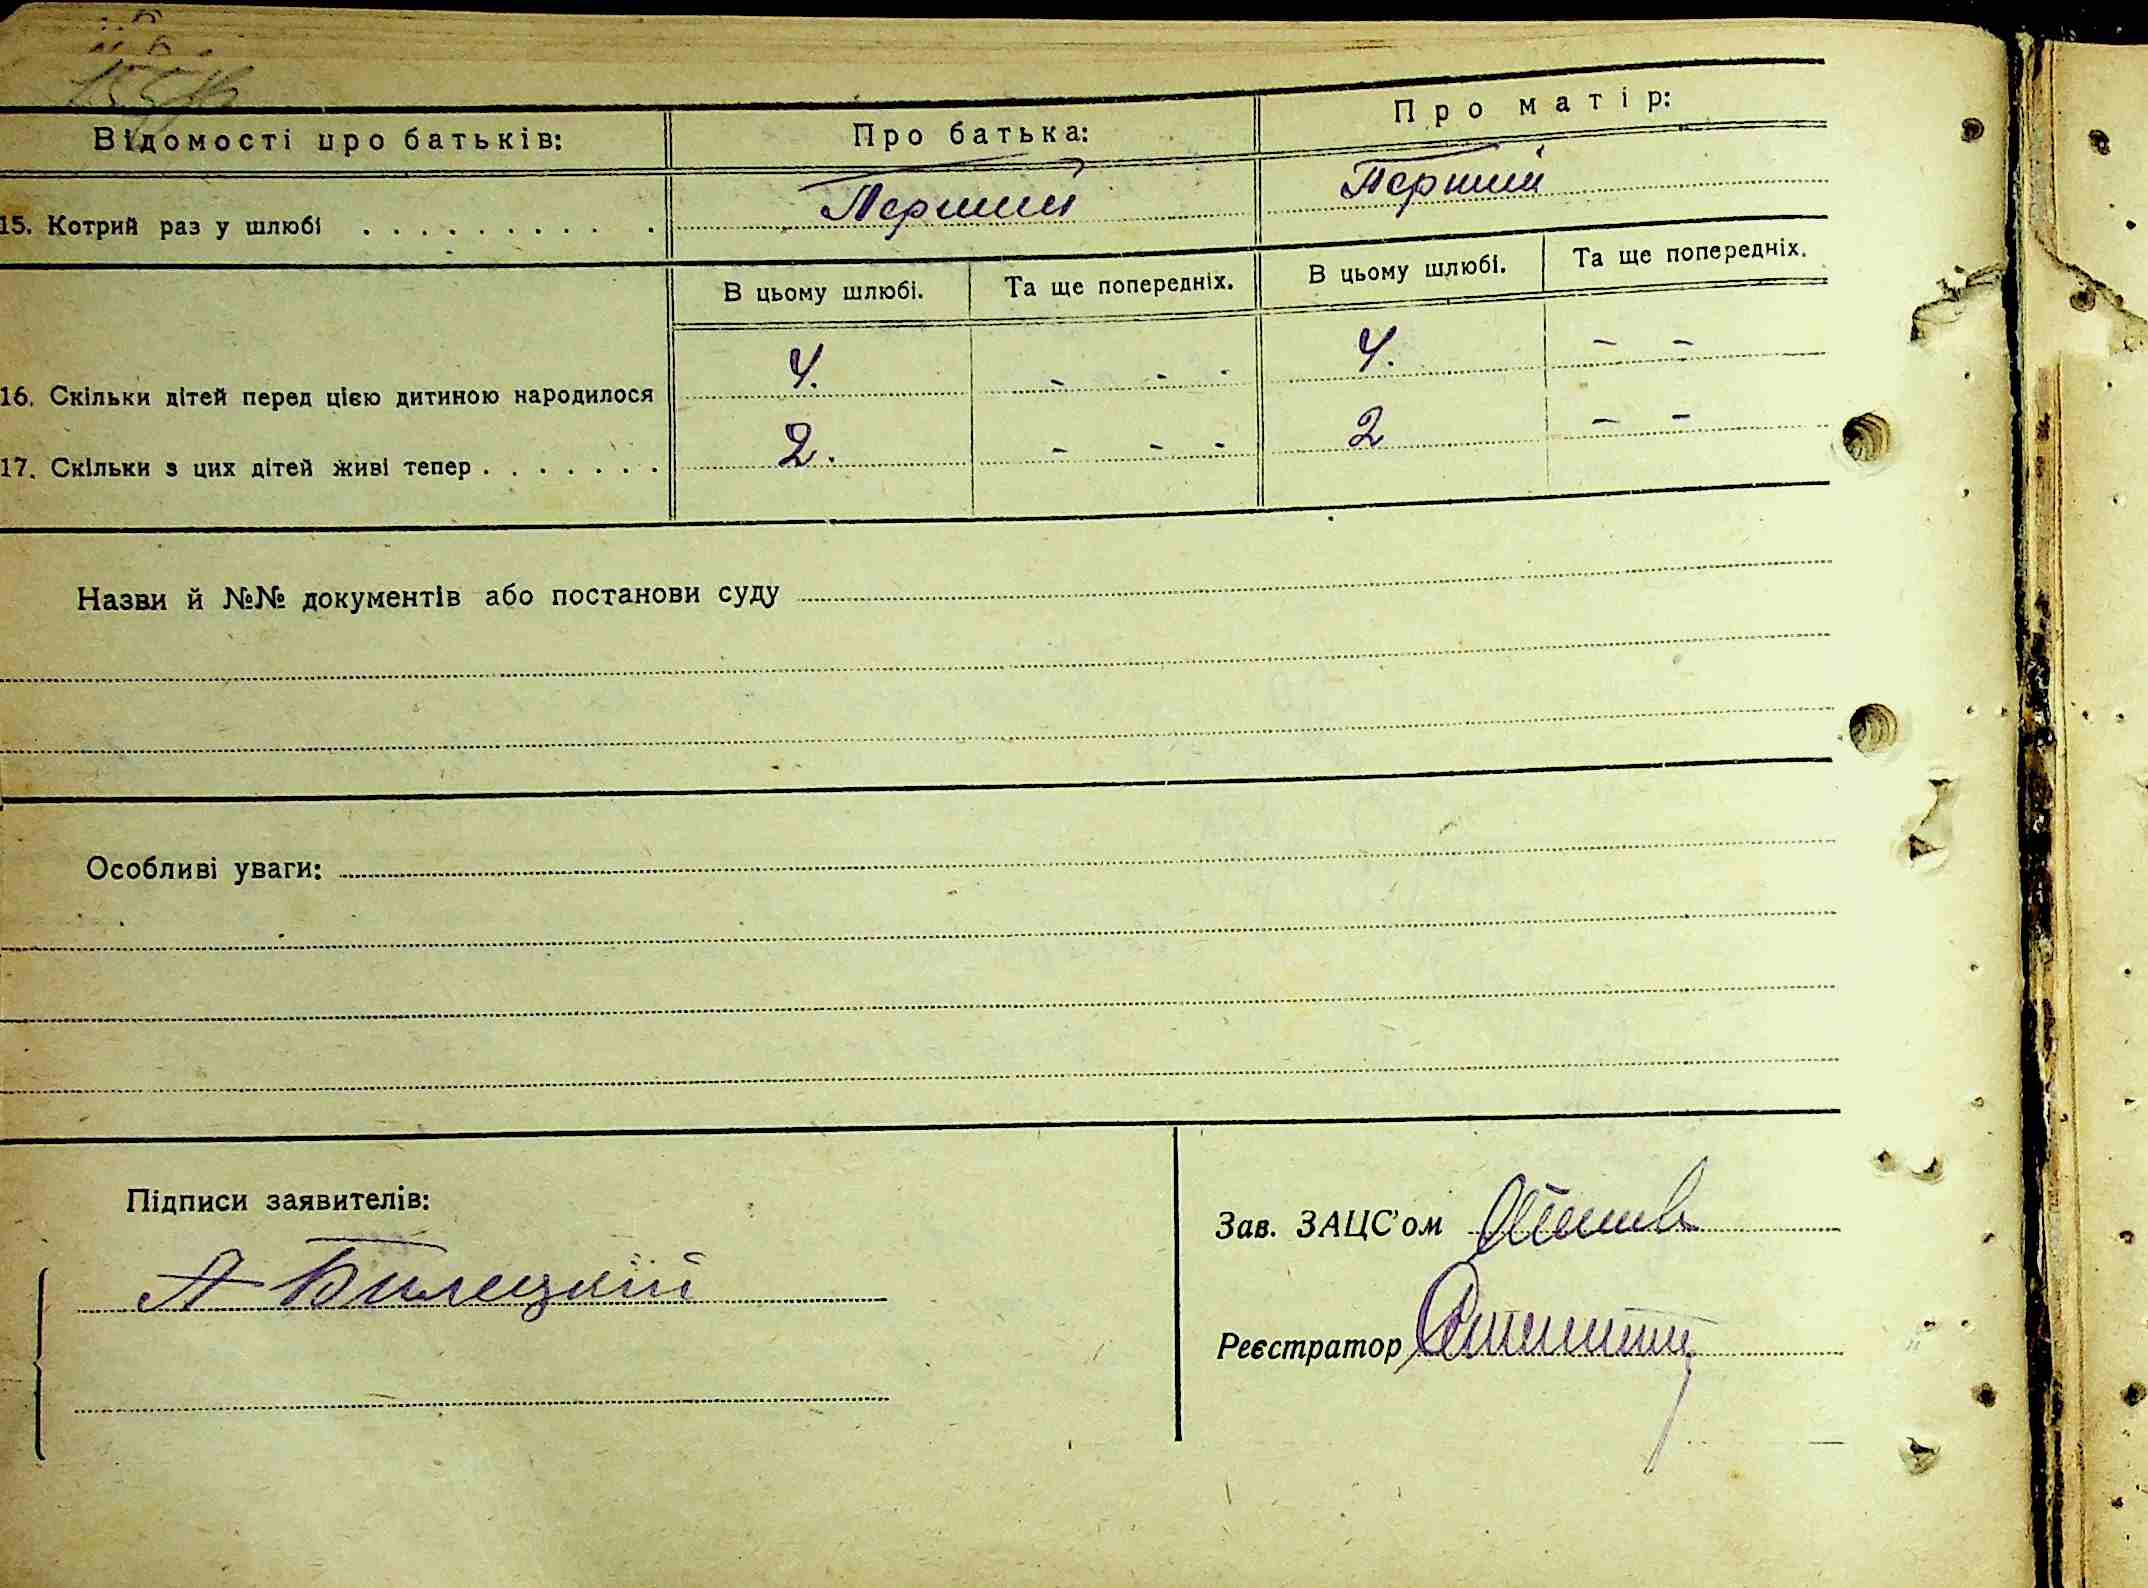 Відомості про батьків: Про батька: Про матір:
15. Котрий раз у шлюбі . . . . . . . . . . Перший Перший
В цьому шлюбі. Та ще попередніх. В цьому шлюбі. Та ще попередніх.
16. Скільки дітей перед цією дитиною народилося 4. - - - 4. - -
17. Скільки з цих дітей живі тепер . . . . . . . 2. - - - 2 - -
Назви й №№ документів або постанови суду
Особливі уваги:
Підписи заявителів:
А Билецкий
Зав. ЗАЦС'ом
Реєстратор